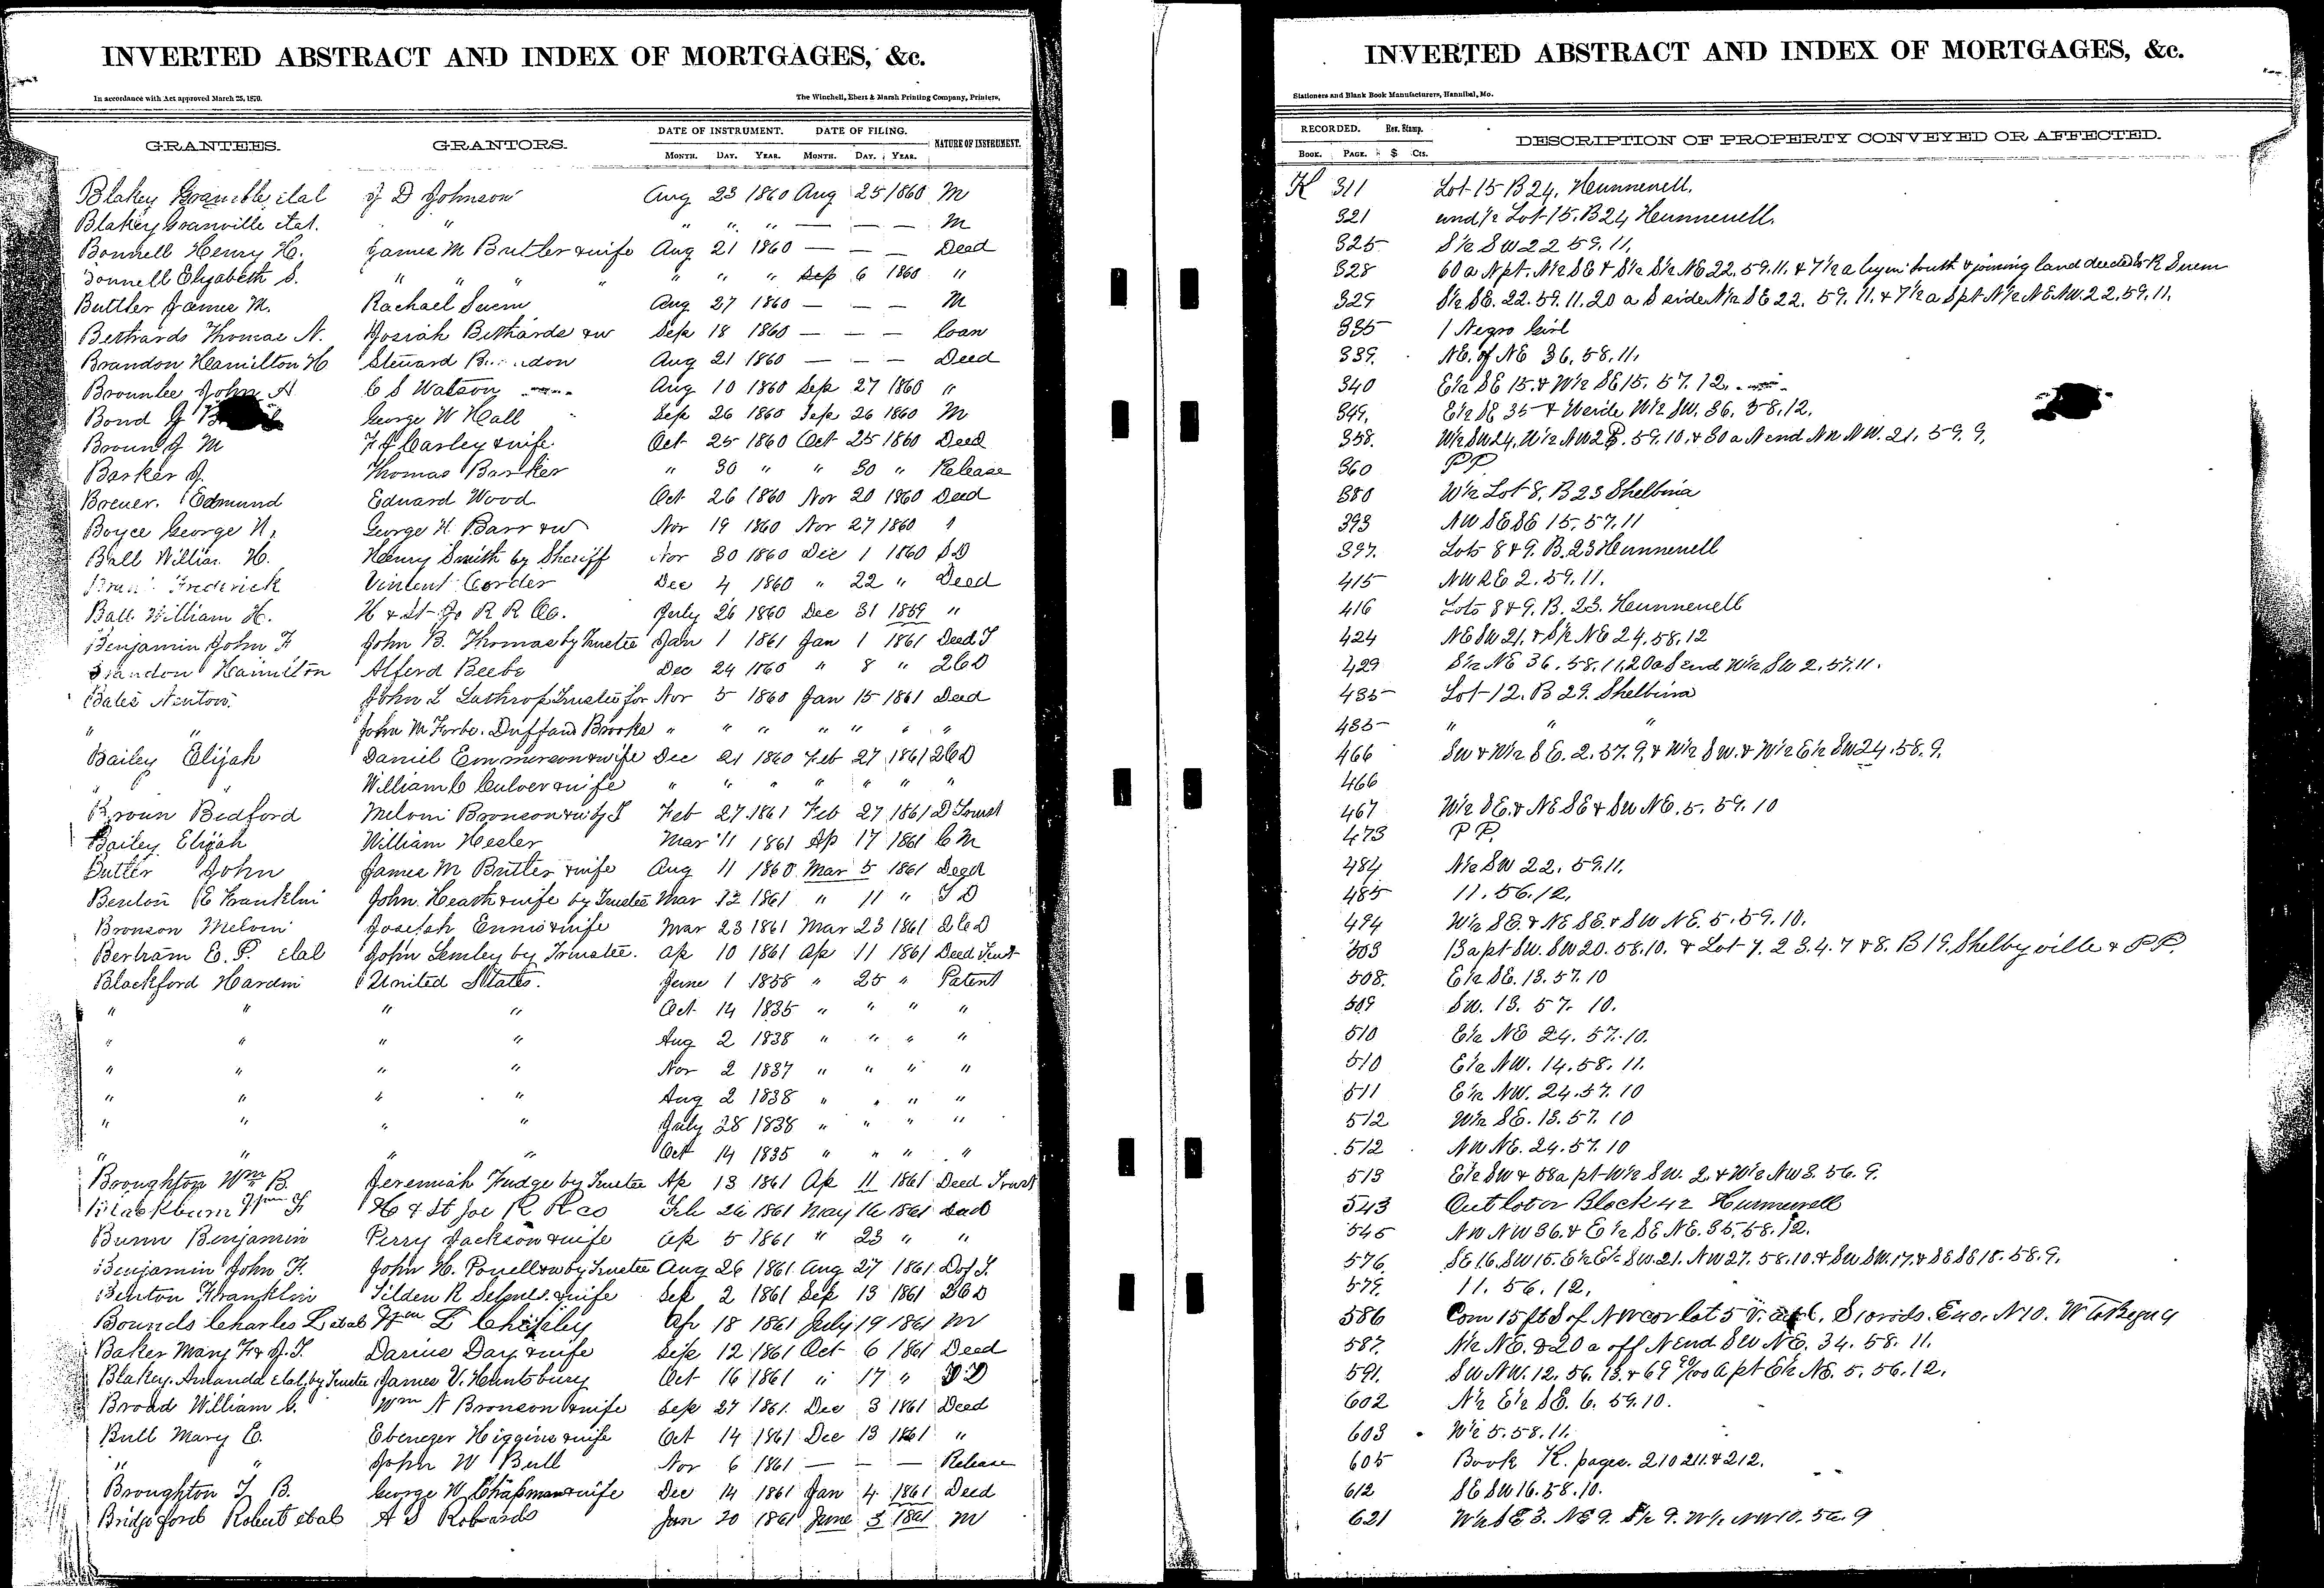 INVERTED ABSTRACT AND INDEX OF MORTGAGES, &c.
In accordance with Act approved March 25, 1870. The Winchell, Ebert & Marsh Printing Company, Printers,
GRANTEES. GRANTORS. DATE OF INSTRUMENT. DATE OF FILING. NATURE OF INSTRUMENT.
MONTH. DAY. YEAR. MONTH. DAY. YEAR.
Blakey Granville etal J D Johnson Aug 23 1860 Aug 25 1860 M
Blakey Granville etal. " " " " — — — M
Bonnell Henry H. James M Butler & wife Aug 21 1860 — — — Deed
Bonnell Elizabeth S. " " " " " " " Sep 6 1860 "
Buttler James M. Rachael Suem Aug 27 1860 — — — M
Bethards Thomas N. Josiah Bethards & w Sep 18 1860 — — — Loan
Brandon Hamilton H Steward Aug 21 1860 — — — Deed
Brounlee John A C S Watson Aug 10 1860 Sep 27 1860 "
Bond J George W Hall Sep 26 1860 Sep 26 1860 M
Broun J M F J Carley & wife. Oct 25 1860 Oct 25 1860 Deed
Barker J. Thomas Barker " 30 " " 30 " Release
Breuer. Edmund Edward Wood Oct 26 1860 Nov 20 1860 Deed
Boyce George N, George H. Barr & w Nov 19 1860 Nov 27 1860 "
Ball William H. Henry Smith by Sheriff Nov 30 1860 Dec 1 1860 S D
Frederick Vincent Corder Dec 4 1860 " 22 " Deed
Ball William H. H & St Jo R R Co. July 26 1860 Dec 31 1859 "
Benjamin John F John B. Thomas by Trustee Jan 1 1861 Jan 1 1861 Deed T
Brandon Hamilton Alferd Beebe Dec 24 1860 " 8 " 2 C D
Bates Newton. John L Lathrop Trustee for Nov 5 1860 Jan 15 1861 Deed
" " John M Forbe. Duff and Brooks " " " " " " "
Bailey Elijah Daniel Emmerson & wife Dec 21 1860 Feb 27 1861 2 C D
" William C Culver & wife " " " " " " "
Broun Bedford Melvin Bronson & wife T Feb 27 1861 Feb 27 1861 D Trust
Bailey Elijah William Hesler Mar 11 1861 Ap 17 1861 C M
Butler John James M Butler & wife Aug 11 1860 Mar 5 1861 Deed
Benton E Franklin John Heath & wife by Trustee Mar 12 1861 " 11 " T D
Bronson Melvin Joseph Ennis & wife Mar 23 1861 Mar 23 1861 2 C D
Bertram E. P. etal John Lemley by Trustee. Ap 10 1861 Ap 11 1861 Deed Trust
Blackford Hardin United States. June 1 1838 " 25 " Patent
" " " " Oct 14 1835 " " " "
" " " " Aug 2 1838 " " " "
" " " " Nov 2 1837 " " " "
" " " " Aug 2 1838 " " " "
" " " " July 28 1838 " " " "
" " " " Oct 14 1835 " " " "
Broughton Wm B. Jeremiah Fudge by Trustee Ap 13 1861 Ap 11 1861 Deed Trust
Blackburn Wm F H & St Joe R R Co Feb 26 1861 May 16 1861 Deed
Bunn Benjamin Perry Jackson & wife Ap 5 1861 " 23 " "
Benjamin John F. John H. Powell & w by Trustee Aug 26 1861 Aug 27 1861 D of T.
Benton Franklin Tilden R Selmes & wife Sep 2 1861 Sep 13 1861 2 C D
Bounds Charles L etal Wm L Chipley Ap 18 1861 July 19 1861 M
Baker Mary F & J. T. Darius Day & wife Sep 12 1861 Oct 6 1861 Deed
Blakey. Amanda etal, by Trustee James V. Huntsbury Oct 16 1861 " 17 " D D
Broad William C. Wm N Bronson & wife Sep 27 1861 Dec 3 1861 Deed
Bull Mary E. Ebenezer Higgins & wife Oct 14 1861 Dec 13 1861 "
" " John W Bull Nov 6 1861 — — — Release
Broughton J B. George W Chapman & wife Dec 14 1861 Jan 4 1861 Deed
Bridgford Robert etal A S Robards Jan 20 1861 June 3 1861 M
INVERTED ABSTRACT AND INDEX OF MORTGAGES, &c.
Stationers and Blank Book Manufacturers, Hannibal, Mo.
RECORDED. Rev. Stamp. DESCRIPTION OF PROPERTY CONVEYED OR AFFECTED.
BOOK. PAGE. $ Cts.
K 311 Lot 15 B 24, Hunnewell.
321 und 1/2 Lot 15. B 24 Hunnewell.
325 S 1/2 SW 22 59. 11.
328 60 a N pt. N 1/2 SE & S 1/2 S 1/2 NE 22. 59. 11. & 7 1/2 a lyin South & joining land deeded to R Suem
329 S 1/2 SE. 22. 59. 11. 20 a S side N 1/2 SE 22. 59. 11. & 7 1/2 a S pt N 1/2 NE NW. 22. 59. 11.
335 1 Negro Girl
339. NE. of NE 36. 58. 11.
340 E 1/2 SE 15. & W 1/2 SE 15. 57. 12.
349. E 1/2 SE 35 & W side W 1/2 SW. 36. 58. 12.
358. W 1/2 SW 24. W 1/2 NW 25. 59. 10. & 30 a N end NW NW. 21. 59. 9.
360 P P
380 W 1/2 Lot 8. B 23 Shelbina
393 NW SE SE 15. 57. 11
397. Lots 8 & 9. B. 23 Hunnewell
415 NW SE 2. 59. 11.
416 Lots 8 & 9. B. 23. Hunnewell
424 NE SW 21. & S 1/2 NE 24. 58. 12
429 S 1/2 NE 36. 58. 11, 20 a S end W 1/2 SW 2. 57. 11.
435 Lot 12. B 29. Shelbina
435 " " "
466 SW & W 1/2 SE. 2. 57. 9. & W 1/2 SW. & W 1/2 E 1/2 SW 24. 58. 9.
466
467 W 1/2 SE. & NE SE & SW NE. 5. 59. 10
473 P P.
484 N 1/2 SW 22. 59. 11.
485 11. 56. 12.
494 W 1/2 SE. & NE SE. & SW NE. 5. 59. 10.
503 13 a pt SW. SW 20. 58. 10. & Lot 1. 2 3. 4. 7 & 8. B 19. Shelbyville & P P.
508. E 1/2 SE. 13. 57. 10
509 SW. 13. 57. 10.
510 E 1/2 NE 24. 57. 10.
510 E 1/2 NW. 14. 58. 11.
511 E 1/2 NW. 24. 57. 10
512 W 1/2 SE. 13. 57. 10
512 NW NE. 24. 57. 10
513 E 1/2 SW & 58 a pt W 1/2 SW. 2. & W 1/2 NW 3. 56. 9.
543 Out lot or Block 42 Hunnewell
545 NW NW 36. & E 1/2 SE NE. 35. 58. 12.
576. SE 16. SW 15. E 1/2 E 1/2 SW. 21. NW 27. 58. 10. & SW SW. 17. & SE SE 18. 58. 9.
579. 11. 56. 12.
586 Com 15 ft S of NW cor lot 5 S 10 rods. E 20. N 10. W to Beging
587. N 1/2 NE. & 20 a off N end SW NE. 34. 58. 11.
591. SW NW. 12. 56. 13. & 69 90/100 a pt E 1/2 NE. 5. 56. 12.
602 N 1/2 E 1/2 SE. 6. 59. 10.
603 W 1/2 5. 58. 11.
605 Book K. pages. 210 211. & 212.
612 SE SW 16. 58. 10.
621 W 1/2 SE 3. NE 9. S 1/2 9. W 1/2 NW 10. 56. 9